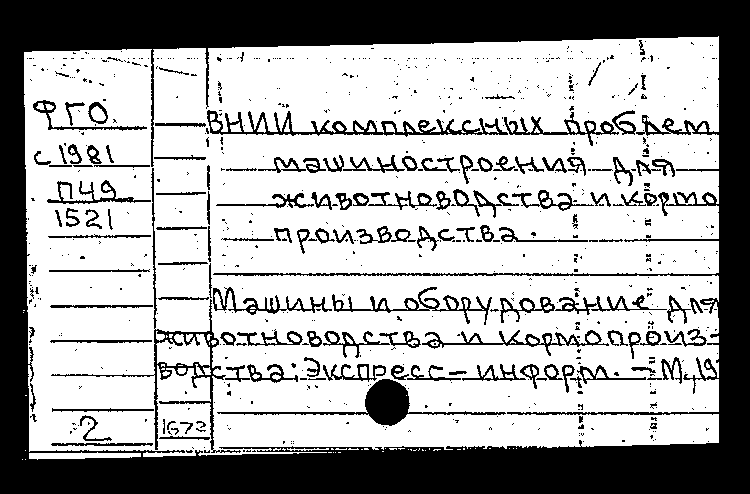 ФГО
с1981
П49
1521
ВНИИ комплексных проблем
машиностроения для
животноводства и кормо
производства.
Машины и оборудование для
животноводства и кормопроиз-
водства: Экспресс-информ. - М., 19
2
1672